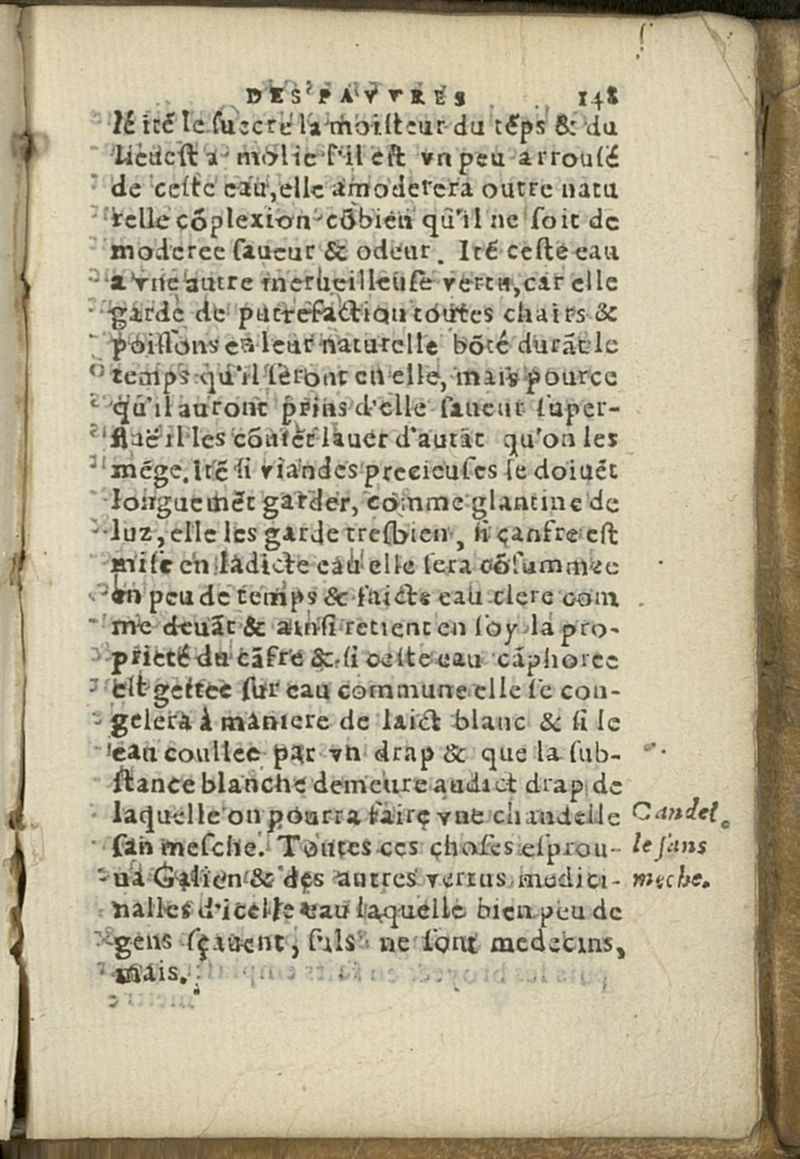 DES PAVVRES 148
lé ité le succre la moisteur du tẽps & du
lieu est a molie s'il est vn peu arrousé
de ceste eau, elle amoderera outre natu
relle cõplexion cõbien qu'il ne soit de
moderee saueur & odeur. Itẽ ceste eau
a vne autre merueilleuse vertu, car elle
garde de putrefactiõ toutes chairs &
poissons en leur naturelle bõté durãt le
temps qu'il seront en elle, mais pource
qu'il auront prins d'elle saueur super-
flue il les cõuiẽt lauer d'autãt qu'on les
mẽge. Itẽ si viandes precieuses se doiuẽt
longuemẽt garder, comme glantine de
luz, elle les garde tresbien, si çanfre est
mise en ladicte eau elle sera cõsummee
en peu de temps & faicte eau clere com
me deuãt & ainsi retient en soy la pro-
prieté du cãfre & si ceste eau cãphoree
est gettee sur eau commune elle se con-
gelera à maniere de laict blanc & si le
eau coullee par vn drap & que la sub-
stance blanche demeure audict drap de
laquelle on pourra faire vne chandelle
san mesche. Toutes ces choses esprou-
ua Galien & des autres vertus medici-
nalles d'icelle eau laquelle bien peu de
gens sçauent, s'ils ne sont medecins,
mais.
Candel
le sans
meche.